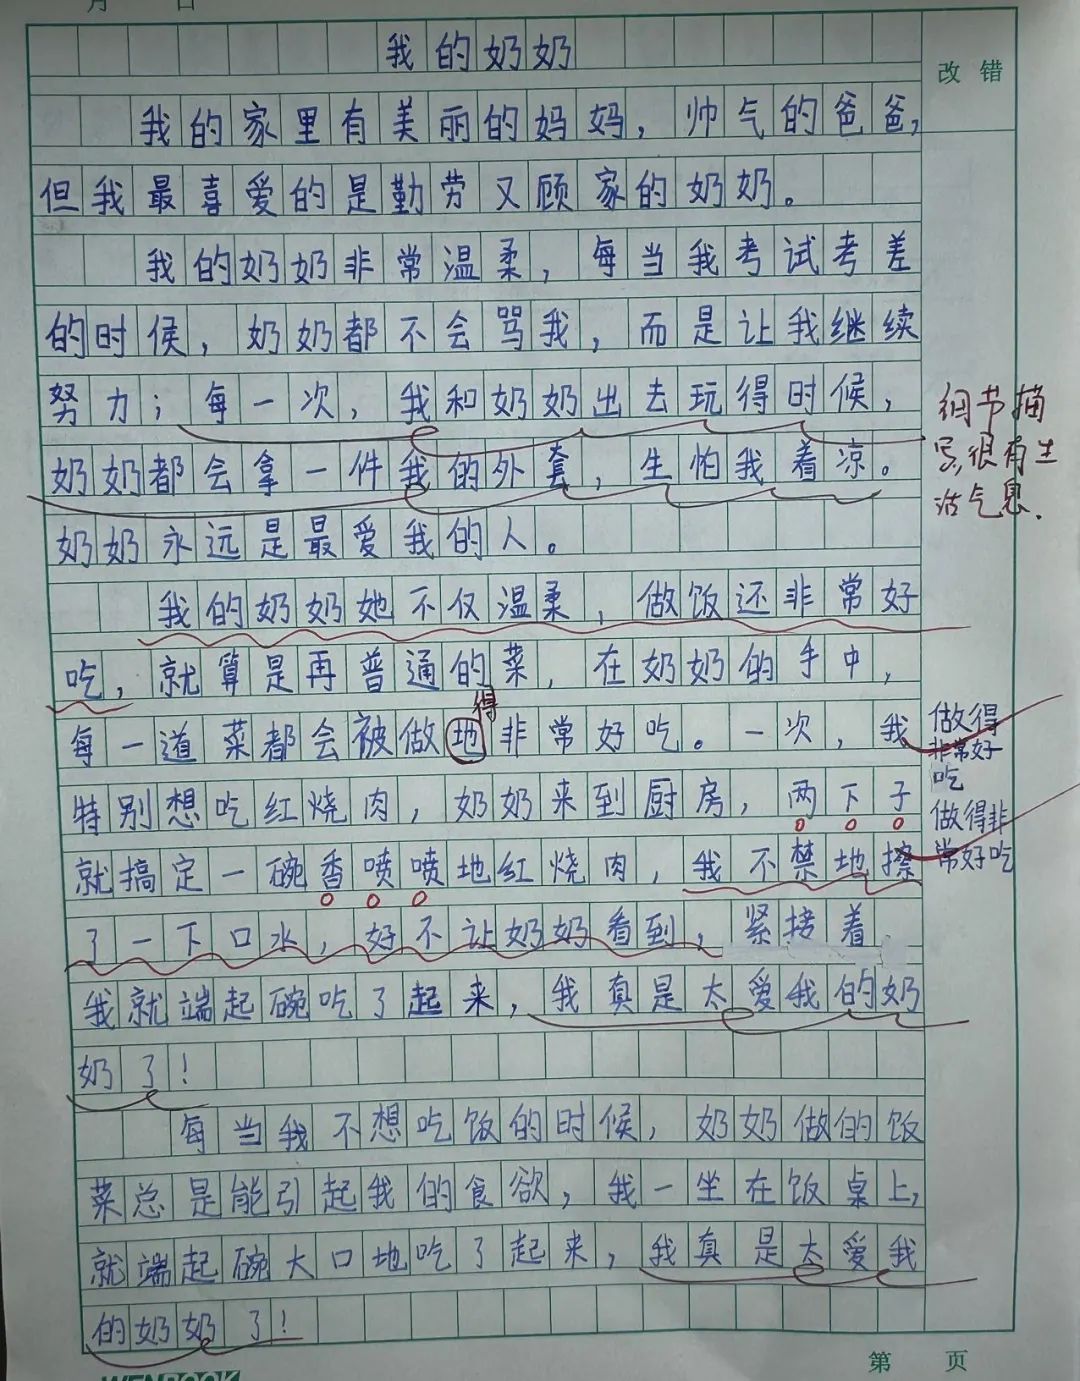 月 日
我的奶奶
改错
我的家里有美丽的妈妈，帅气的爸爸，
但我最喜爱的是勤劳又顾家的奶奶。
我的奶奶非常温柔，每当我考试考差
的时侯，奶奶都不会骂我，而是让我继续
努力；每一次，我和奶奶出去玩得时候，
奶奶都会拿一件我的外套，生怕我着凉。
细节描
写，很有生
活气息.
奶奶永远是最爱我的人。
我的奶奶她不仅温柔，做饭还非常好
吃，就算是再普通的菜，在奶奶的手中，
得
每一道菜都会被做地非常好吃。一次，我
做得
非常好
吃
特别想吃红烧肉，奶奶来到厨房，两下子
做得非
常好吃
就搞定一碗香喷喷地红烧肉，我不禁地擦
了一下口水，好不让奶奶看到，紧接着
我就端起碗吃了起来，我真是太爱我的奶
奶了！
每当我不想吃饭的时候，奶奶做的饭
菜总是能引起我的食欲，我一坐在饭桌上，
就端起碗大口地吃了起来，我真是太爱我
的奶奶了！
第 页